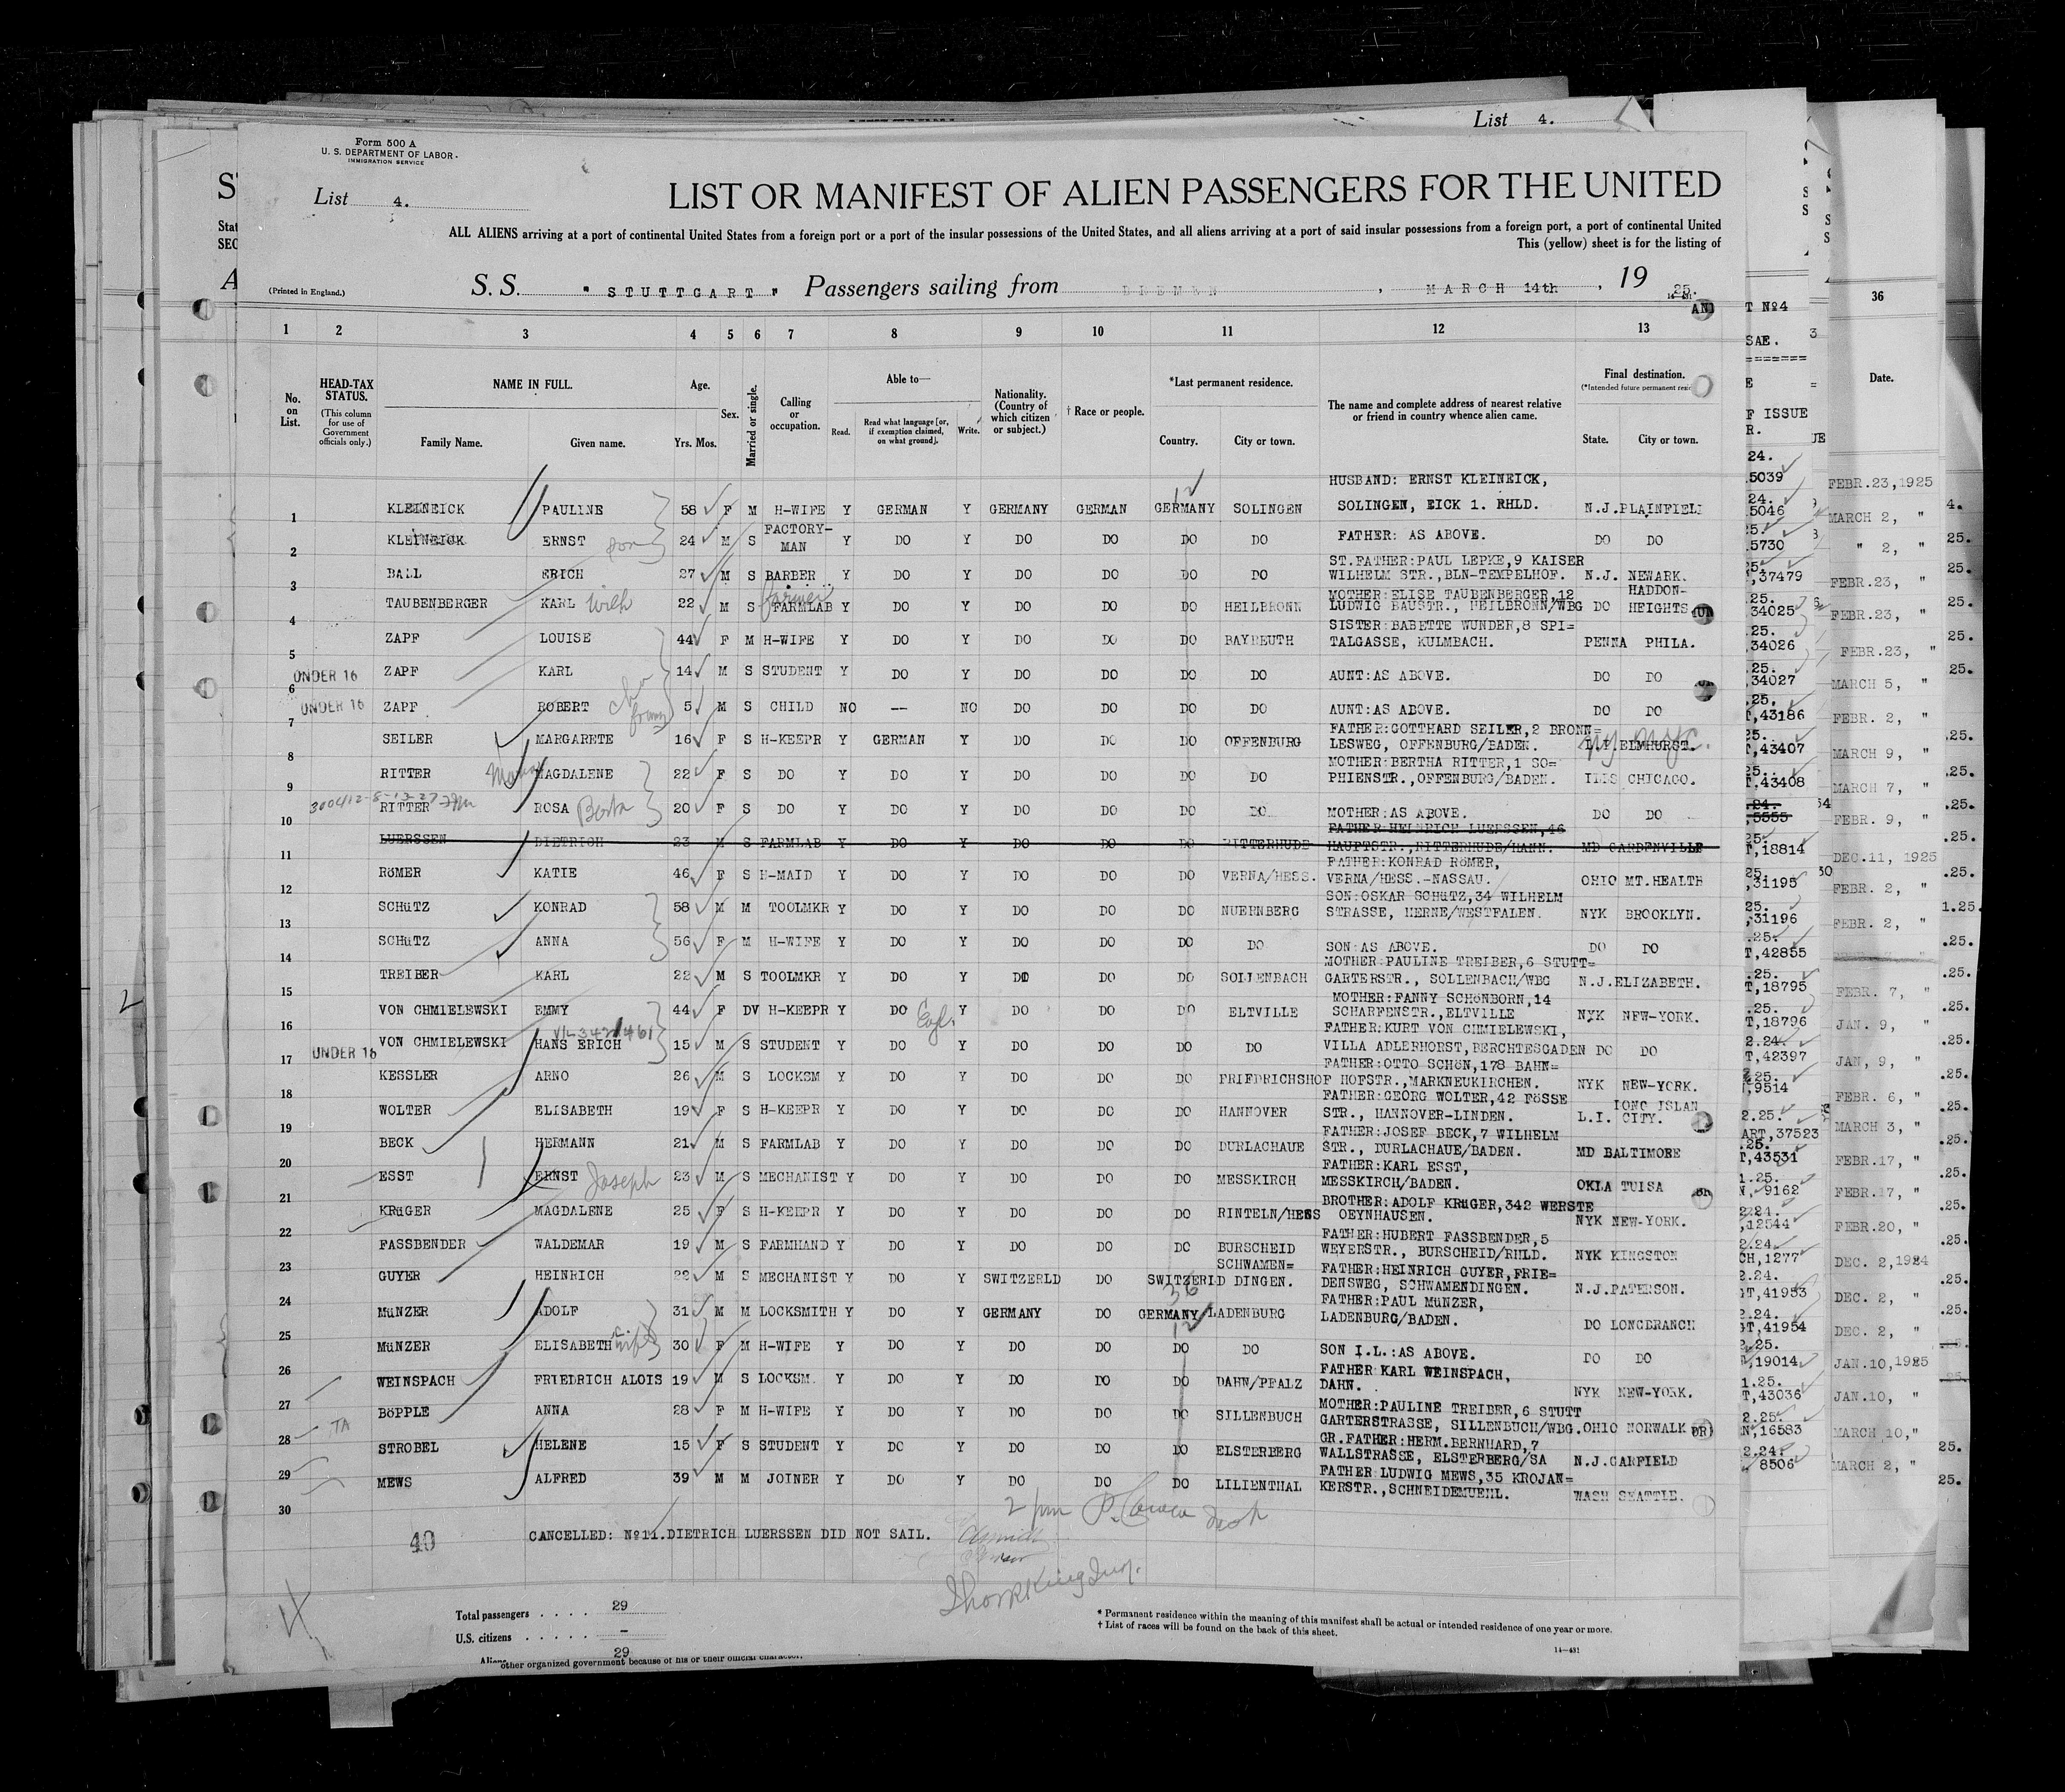 List 4.
Form 500 A
U. S. DEPARTMENT OF LABOR
IMMIGRATION SERVICE
List 4.
LIST OR MANIFEST OF ALIEN PASSENGERS FOR THE UNITED
ALL ALIENS arriving at a port of continental United States from a foreign port or a port of the insular possessions of the United States, and all aliens arriving at a port of said insular possessions from a foreign port, a port of continental United
This (yellow) sheet is for the listing of
(Printed in England.) S. S. "STUTTGART" Passengers sailing from BREMEN, MARCH 14th, 19 25.
1 2 3 4 5 6 7 8 9 10 11 12 13
No. on List.
HEAD-TAX STATUS.
(This column for use of Government officials only.)
NAME IN FULL.
Family Name. Given name.
Age.
Yrs. Mos.
Sex.
Married or single.
Calling or occupation.
Able to—
Read. Read what language [or, if exemption claimed, on what ground]. Write.
Nationality. (Country of which citizen or subject.)
† Race or people.
*Last permanent residence.
Country. City or town.
The name and complete address of nearest relative or friend in country whence alien came.
Final destination.
State. City or town.
1 KLEINEICK PAULINE 58 F M H-WIFE Y GERMAN Y GERMANY GERMAN GERMANY SOLINGEN HUSBAND: ERNST KLEINEICK, SOLINGEN, EICK 1. RHLD. N.J. PLAINFIEL
2 KLEINEICK ERNST son 24 M S FACTORY-MAN Y DO Y DO DO DO DO FATHER: AS ABOVE. DO DO
3 BALL ERICH 27 M S BARBER Y DO Y DO DO DO DO ST.FATHER:PAUL LEPKE,9 KAISER WILHELM STR.,BLN-TEMPELHOF. N.J. NEWARK.
4 TAUBENBERGER KARL Wilh 22 M S farmer FARMLAB Y DO Y DO DO DO HEILBRONN MOTHER:ELISE TAUBENBERGER,12 LUDWIG BAUSTR., HEILBRONN/WBG DO HADDON-HEIGHTS
5 ZAPF LOUISE 44 F M H-WIFE Y DO Y DO DO DO BAYREUTH SISTER:BABETTE WUNDER,8 SPI=TALGASSE, KULMBACH. PENNA PHILA.
6 UNDER 16 ZAPF KARL 14 M S STUDENT Y DO Y DO DO DO DO AUNT:AS ABOVE. DO DO
7 UNDER 16 ZAPF ROBERT 5 M S CHILD NO -- NO DO DO DO DO AUNT:AS ABOVE. DO DO
8 SEILER MARGARETE 16 F S H-KEEPR Y GERMAN Y DO DO DO OFFENBURG FATHER:GOTTHARD SEILER,2 BRONN=LESWEG, OFFENBURG/BADEN. L.I.ELMHURST.
9 RITTER MAGDALENE 22 F S DO Y DO Y DO DO DO DO MOTHER:BERTHA RITTER,1 SO=PHIENSTR.,OFFENBURG/BADEN. ILIS CHICAGO.
10 RITTER ROSA Berta 20 F S DO Y DO Y DO DO DO DO MOTHER:AS ABOVE. DO DO
11 LUERSSEN DIETRICH 23 M S FARMLAB Y DO Y DO DO DO RITTERHUDE FATHER:HEINRICH LUERSSEN,46 HAUPTSTR.,RITTERHUDE/HANN. MD GARDENVILLE
12 RÖMER KATIE 46 F S H-MAID Y DO Y DO DO DO VERNA/HESS. FATHER:KONRAD RÖMER, VERNA/HESS.-NASSAU. OHIO MT.HEALTH
13 SCHÜTZ KONRAD 58 M M TOOLMKR Y DO Y DO DO DO NUERNBERG SON:OSKAR SCHÜTZ,34 WILHELM STRASSE, HERNE/WESTFALEN. NYK BROOKLYN.
14 SCHÜTZ ANNA 56 F M H-WIFE Y DO Y DO DO DO DO SON:AS ABOVE. DO DO
15 TREIBER KARL 22 M S TOOLMKR Y DO Y DO DO DO SOLLENBACH MOTHER:PAULINE TREIBER,6 STUTT=GARTERSTR., SOLLENBACH/WBG N.J.ELIZABETH.
16 VON CHMIELEWSKI EMMY 44 F DV H-KEEPR Y DO Engl. Y DO DO DO ELTVILLE MOTHER:FANNY SCHÖNBORN,14 SCHARFENSTR.,ELTVILLE NYK NEW-YORK.
17 UNDER 16 VON CHMIELEWSKI HANS ERICH 15 M S STUDENT Y DO Y DO DO DO DO FATHER:KURT VON CHMIELEWSKI, VILLA ADLERHORST,BERCHTESGADEN DO DO
18 KESSLER ARNO 26 M S LOCKSM Y DO Y DO DO DO FRIEDRICHSHOF FATHER:OTTO SCHÖN,178 BAHN=HOFSTR.,MARKNEUKIRCHEN. NYK NEW-YORK.
19 WOLTER ELISABETH 19 F S H-KEEPR Y DO Y DO DO DO HANNOVER FATHER:GEORG WOLTER,42 FÖSSE STR., HANNOVER-LINDEN. L.I. LONG ISLAN CITY.
20 BECK HERMANN 21 M S FARMLAB Y DO Y DO DO DO DURLACHAUE FATHER:JOSEF BECK,7 WILHELM STR., DURLACHAUE/BADEN. MD BALTIMORE
21 ESST ERNST Joseph 23 M S MECHANIST Y DO Y DO DO DO MESSKIRCH FATHER:KARL ESST, MESSKIRCH/BADEN. OKLA TULSA
22 KRÜGER MAGDALENE 25 F S H-KEEPR Y DO Y DO DO DO RINTELN/HESS BROTHER:ADOLF KRÜGER,342 WERSTE OEYNHAUSEN. NYK NEW-YORK.
23 FASSBENDER WALDEMAR 19 M S FARMHAND Y DO Y DO DO DO BURSCHEID FATHER:HUBERT FASSBENDER,5 WEYERSTR., BURSCHEID/RHLD. NYK KINGSTON
24 GUYER HEINRICH 22 M S MECHANIST Y DO Y SWITZERLD DO SWITZERLD SCHWAMEN=DINGEN. FATHER:HEINRICH GUYER,FRIE=DENSWEG, SCHWAMENDINGEN. N.J.PATERSON.
25 MÜNZER ADOLF 31 M M LOCKSMITH Y DO Y GERMANY DO GERMANY LADENBURG FATHER:PAUL MÜNZER, LADENBURG/BADEN. DO LONGBRANCH
26 MÜNZER ELISABETH wife 30 F M H-WIFE Y DO Y DO DO DO DO SON I.L.:AS ABOVE. DO DO
27 WEINSPACH FRIEDRICH ALOIS 19 M S LOCKSM. Y DO Y DO DO DO DAHN/PFALZ FATHER KARL WEINSPACH, DAHN. NYK NEW-YORK.
28 TA BÖPPLE ANNA 28 F M H-WIFE Y DO Y DO DO DO SILLENBUCH MOTHER:PAULINE TREIBER,6 STUTT GARTERSTRASSE, SILLENBUCH/WBG. OHIO NORWALK
29 STROBEL HELENE 15 F S STUDENT Y DO Y DO DO DO ELSTERBERG GR.FATHER:HERM.BERNHARD,7 WALLSTRASSE, ELSTERBERG/SA N.J.GARFIELD
30 MEWS ALFRED 39 M M JOINER Y DO Y DO DO DO LILIENTHAL FATHER LUDWIG MEWS,35 KROJAN=KERSTR.,SCHNEIDEMUEHL. WASH SEATTLE.
40 CANCELLED: No11.DIETRICH LUERSSEN DID NOT SAIL.
Total passengers 29
U.S. citizens –
29
other organized government because of his or their official character.
* Permanent residence within the meaning of this manifest shall be actual or intended residence of one year or more.
† List of races will be found on the back of this sheet.
14—431
36
Date.
FEBR.23,1925
MARCH 2, "
" 2, "
FEBR.23, "
FEBR.23, "
FEBR.23, "
MARCH 5, "
FEBR. 2, "
MARCH 9, "
MARCH 7, "
FEBR. 9, "
DEC.11, 1925
FEBR. 2, "
FEBR. 2, "
FEBR. 7, "
JAN. 9, "
JAN, 9, "
FEBR. 6, "
MARCH 3, "
FEBR.17, "
FEBR.17, "
FEBR.20, "
DEC. 2,1924
DEC. 2, "
DEC. 2, "
JAN.10,1925
JAN.10, "
MARCH 10,"
MARCH 2, "